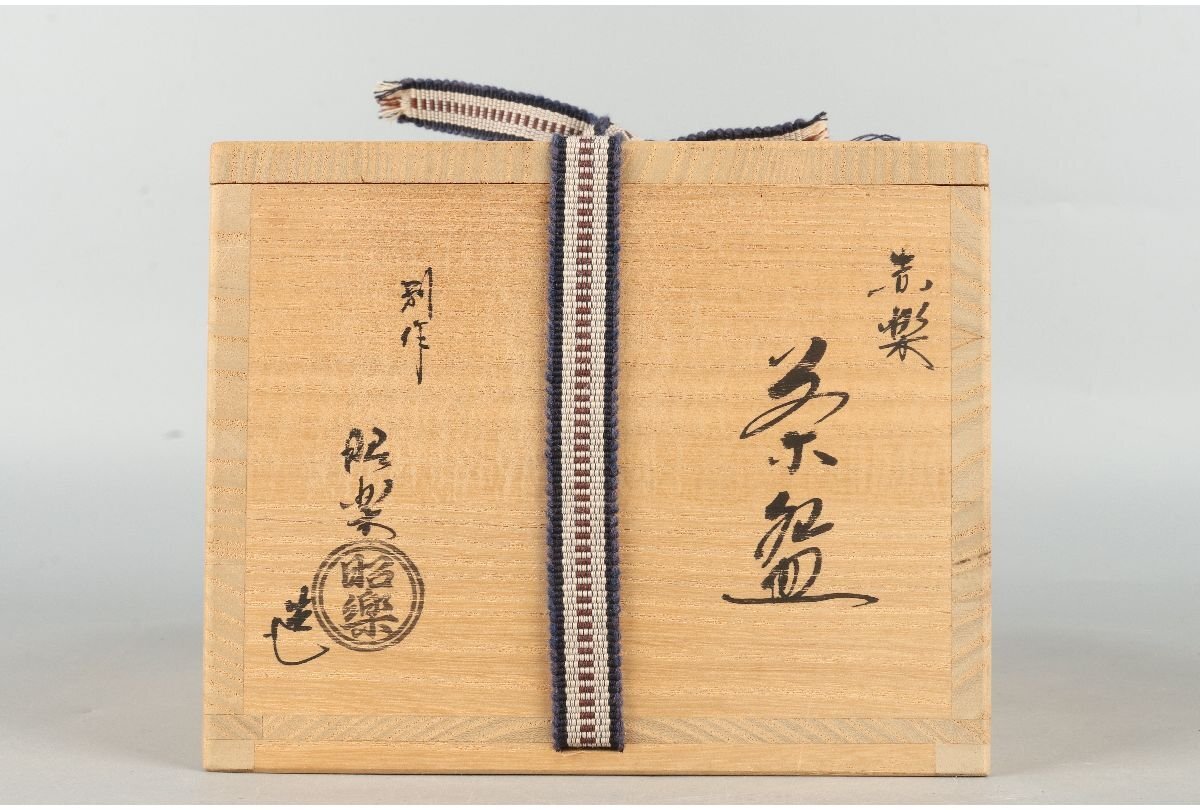 赤楽
茶盌
別作
昭楽
造
昭樂